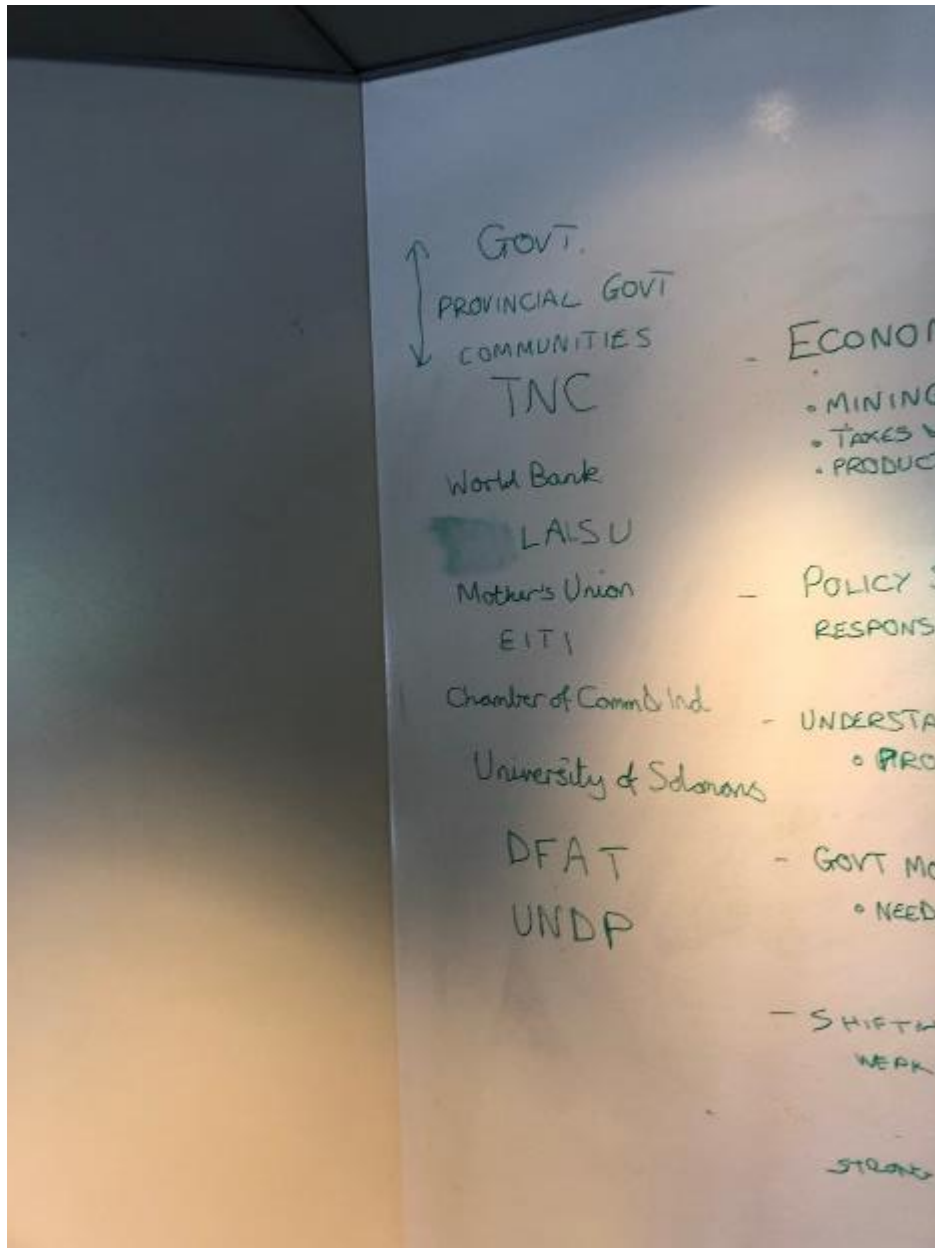 GOVT.
PROVINCIAL GOVT
COMMUNITIES
TNC
World Bank
LALSU
Mother's Union
EITI
Chamber of Comm & Ind.
University of Solomons
DFAT
UNDP
- ECONO
• MINING
• TAXES
• PRODUC
- POLICY
RESPONS
- UNDERSTA
• PRO
- GOVT MO
• NEED
- SHIFTIN
WEAK
STRONG